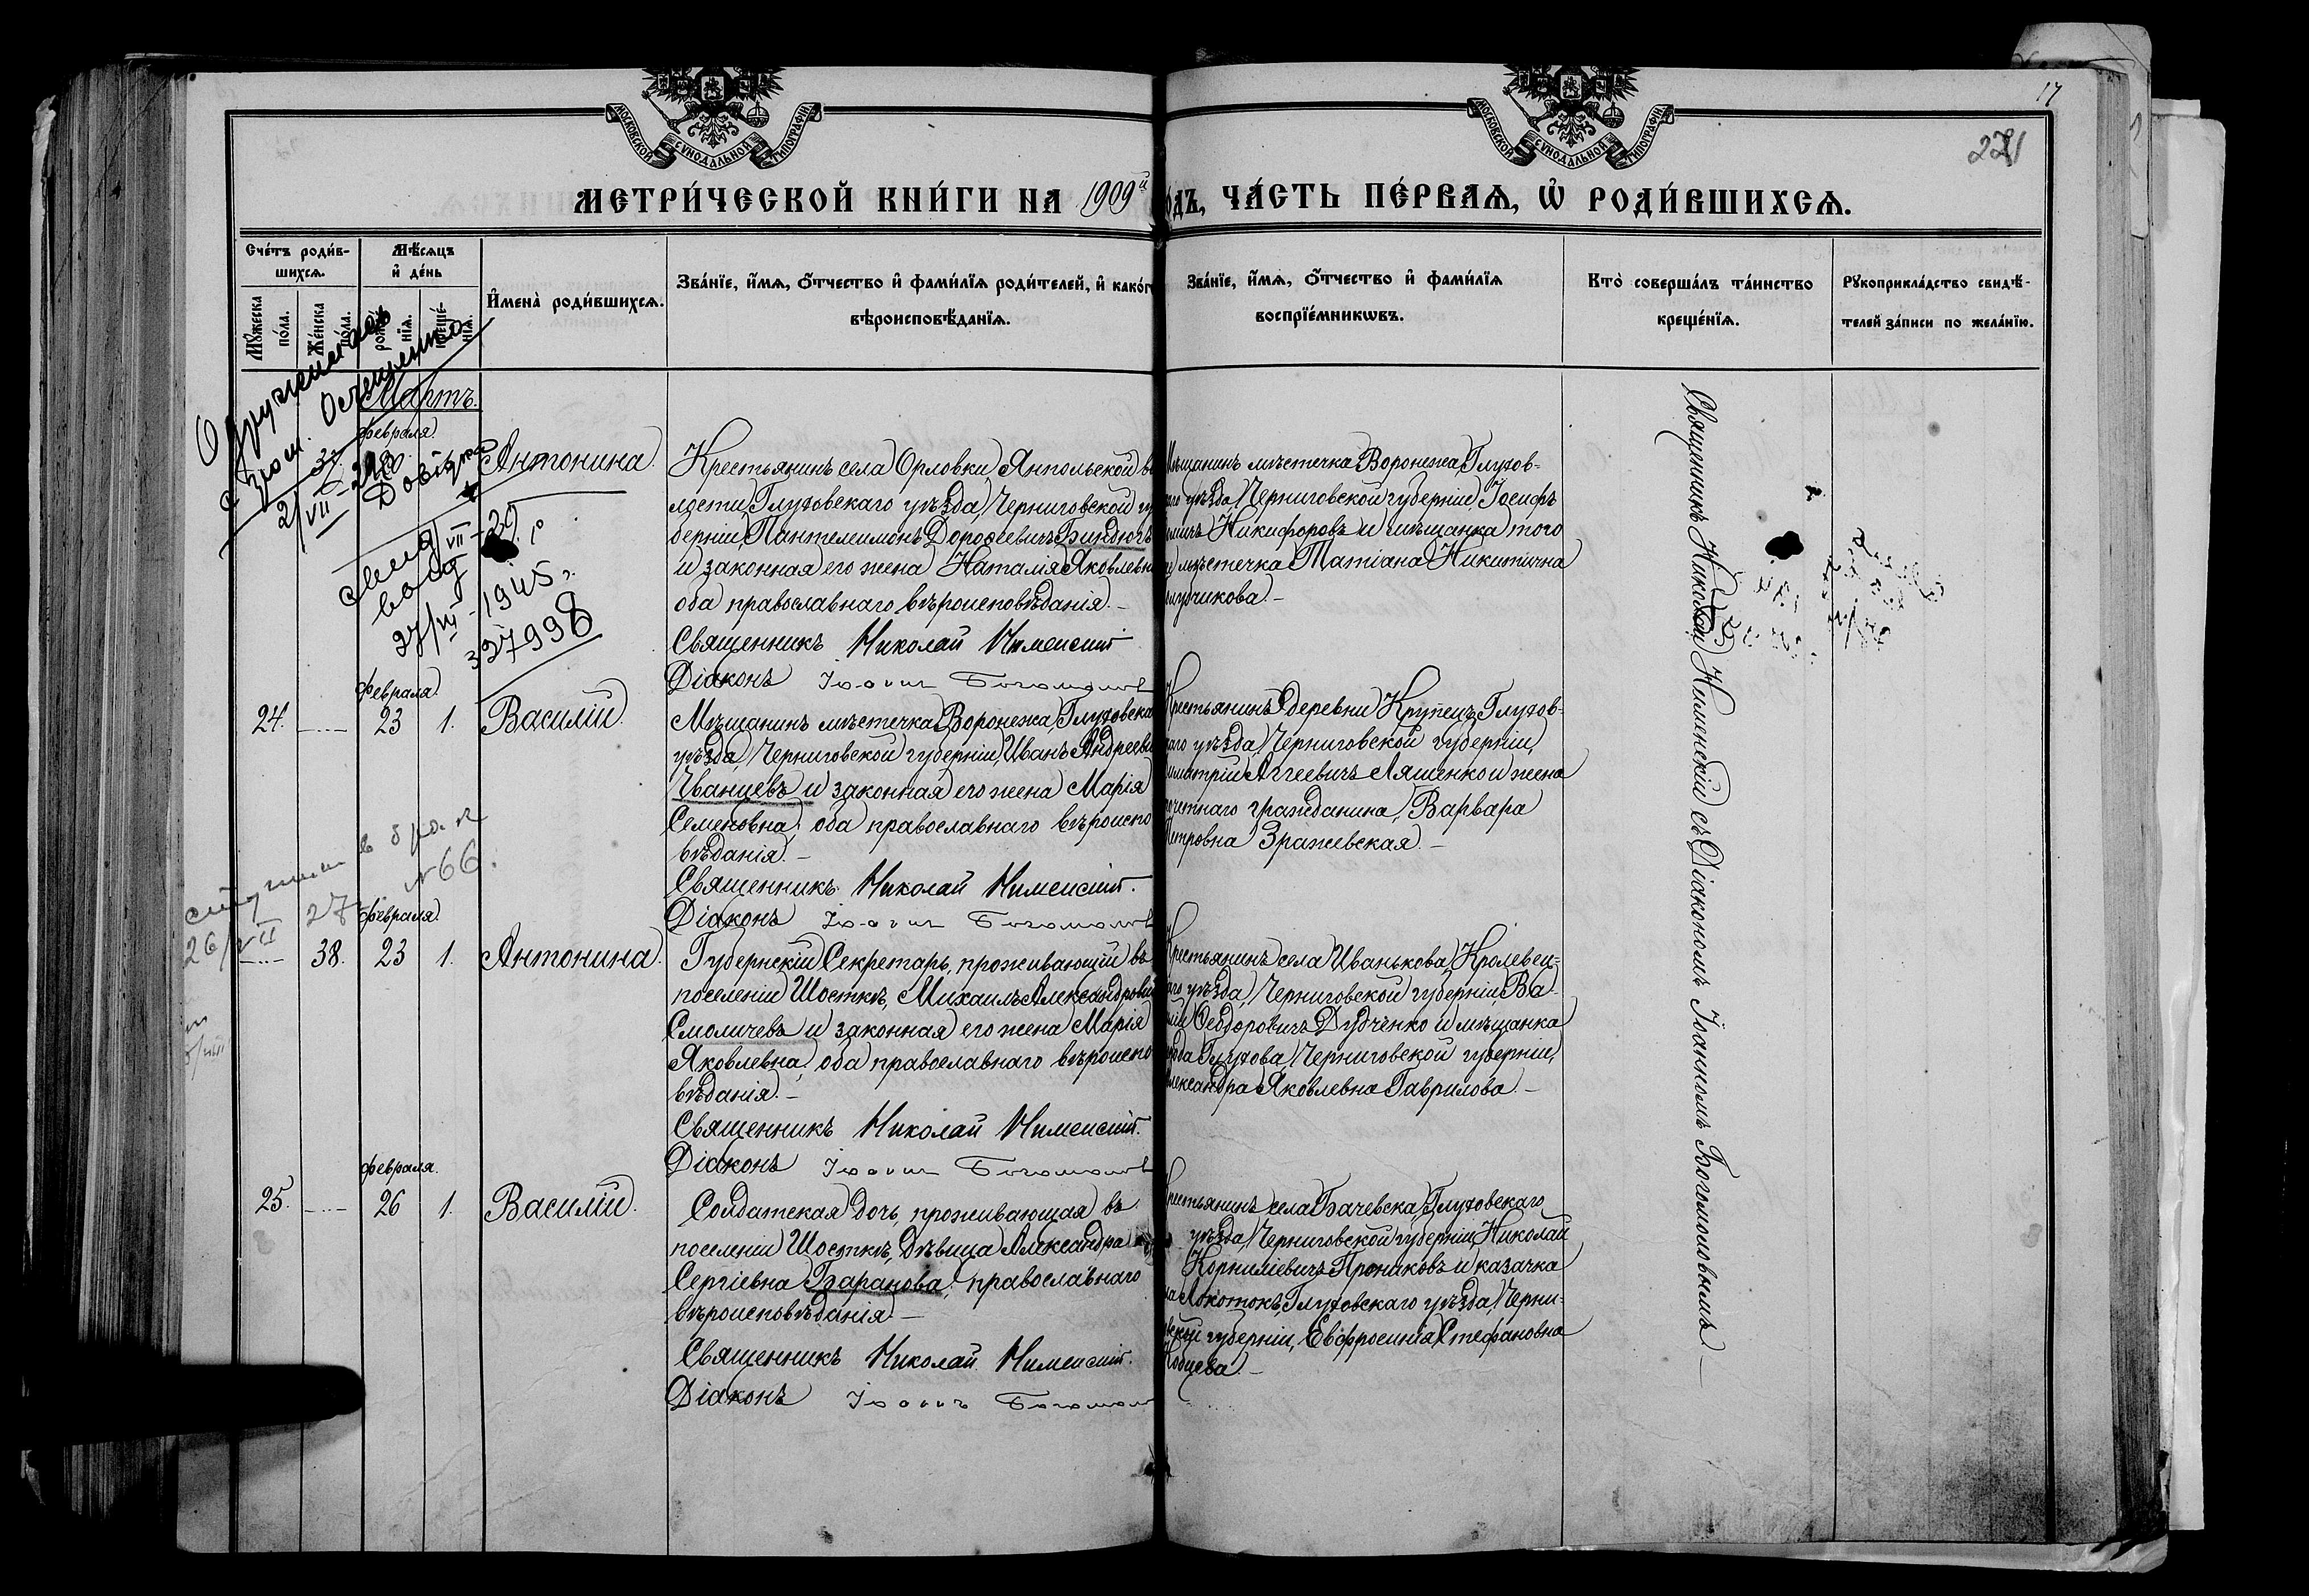 17
221
МОСКОВСКОЙ СѴНОДАЛЬНОЙ ТИПОГРАФІИ
МОСКОВСКОЙ СѴНОДАЛЬНОЙ ТИПОГРАФІИ
МЕТРИ́ЧЕСКОЙ КНИ́ГИ НА 1909й
ѻдъ, ЧА́СТЬ ПЕ́РВАѦ, Ѡ҆ РОДИ́ВШИХСѦ.
Сче́тъ роди́в-
шихсѧ.
Мꙋ́жеска по́ла.
Же́нска по́ла.
Мѣ́сѧцъ
и҆ де́нь
рожде́-
нїѧ.
креще́-
нїѧ.
И҆мена̀ роди́вшихсѧ.
Зва́нїе, и҆́мѧ, ѻ҆́тчество и҆ фами́лїѧ роди́телей, и҆ како́г
вѣроисповѣ́данїѧ.
Зва́нїе, и҆́мѧ, ѻ҆́тчество и҆ фами́лїѧ
воспрїе́мникѡвъ.
Кто̀ соверша́лъ та́инство
креще́нїѧ.
Рꙋкоприкла́дство свидѣ́-
телей за́писи по жела́нїю.
Одружилась
з гром. Осченко
2/VII-29
Довідка
27/VII-1945 г.
327998
Мартъ.
февраля.
Антонина.
Крестьянинъ села Орловки, Ямпольской во
лости, Глуховскаго уѣзда, Черниговской гу
берніи, Пантелеимонъ Дороѳеевичъ Биндюгъ
и законная его жена Наталія Яковлевна
оба православнаго вѣроисповѣданія.—
Священникъ Николай Нименскій
Діаконъ Іоаннъ Богомолов
Мѣщанинъ мѣстечка Воронежа, Глухов-
аго уѣзда, Черниговской губерніи, Іосифъ
Никифоровъ и мѣщанка того
мѣстечка Татіана Никитична
—
февраля.
24. — 23 1. Василій.
Мѣщанинъ мѣстечка Воронежа, Глуховска
уѣзда, Черниговской губерніи, Иванъ Андрееви
Иванцевъ и законная его жена Марія
Семеновна, оба православнаго вѣроиспо
вѣданія.—
Священникъ Николай Нименскій.
Діаконъ Іоаннъ Богомолов
Крестьянинъ деревни Крупецъ, Глухов-
аго уѣзда, Черниговской губерніи,
имитрій Аггеевичъ Ляшенко и жена
почетнаго гражданина, Варвара
Петровна Зражевская.—
№66.
26/VII 27
февраля.
— 38. 23 1. Антонина.
Губернскій Секретарь, проживающій въ
поселеніи Шосткѣ, Михаилъ Александрович
Смоличевъ и законная его жена Марія
Яковлевна, оба православнаго вѣроиспо
вѣданія.—
Священникъ Николай Нименскій.
Діаконъ Іоаннъ Богомолов
Крестьянинъ села Иванькова, Кролевец-
аго уѣзда, Черниговской губерніи, Ва-
лій Ѳеодоровичъ Дудченко и мѣщанка
Глухова, Черниговской губерніи,
лександра Яковлевна Гаврилова.—
февраля.
25. — 26 1. Василій.
Солдатская дочь, проживающая въ
поселеніи Шосткѣ, дѣвица Александра
Сергіевна Баранова, православнаго
вѣроисповѣданія.—
Священникъ Николай Нименскій.
Діаконъ Іоаннъ Богомолов
Крестьянинъ села Бачевска, Глуховскаго
уѣзда, Черниговской губерніи, Николай
Корниліевичъ Прониковъ и казачка
ла Локотокъ, Глуховскаго уѣзда, Черни-
вской губерніи, Евфросинія Стефановна
Священникъ Николай Нименскій съ Діакономъ Іоанномъ Богомоловымъ.—